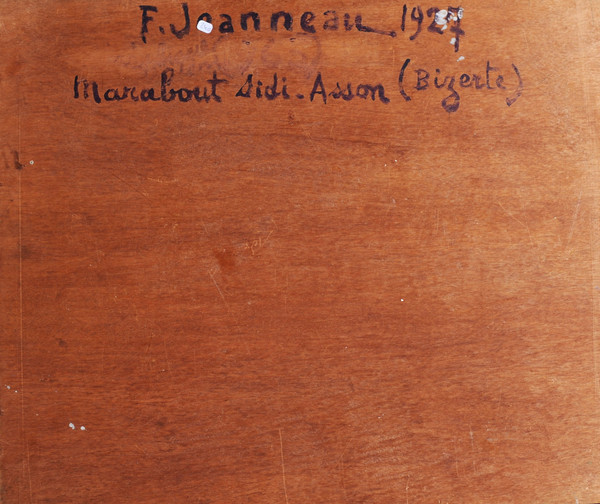 F. Jeanneau 1927
Marabout Sidi-Asson (Bizerte)